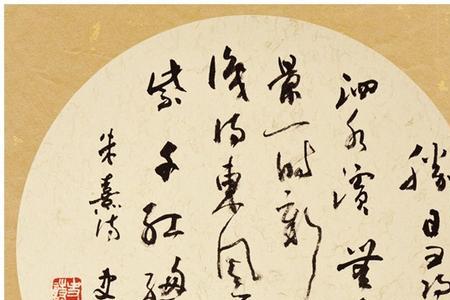 勝日尋芳
泗水濱無
景一時新
識得東風
紫千紅總
朱熹詩